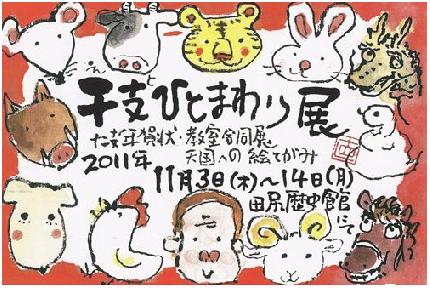 えと
干支ひとまわり展
年賀状・教室合同展
2011年 天国への絵てがみ
11月3日(木)~14日(月)
田尻歴史館にて